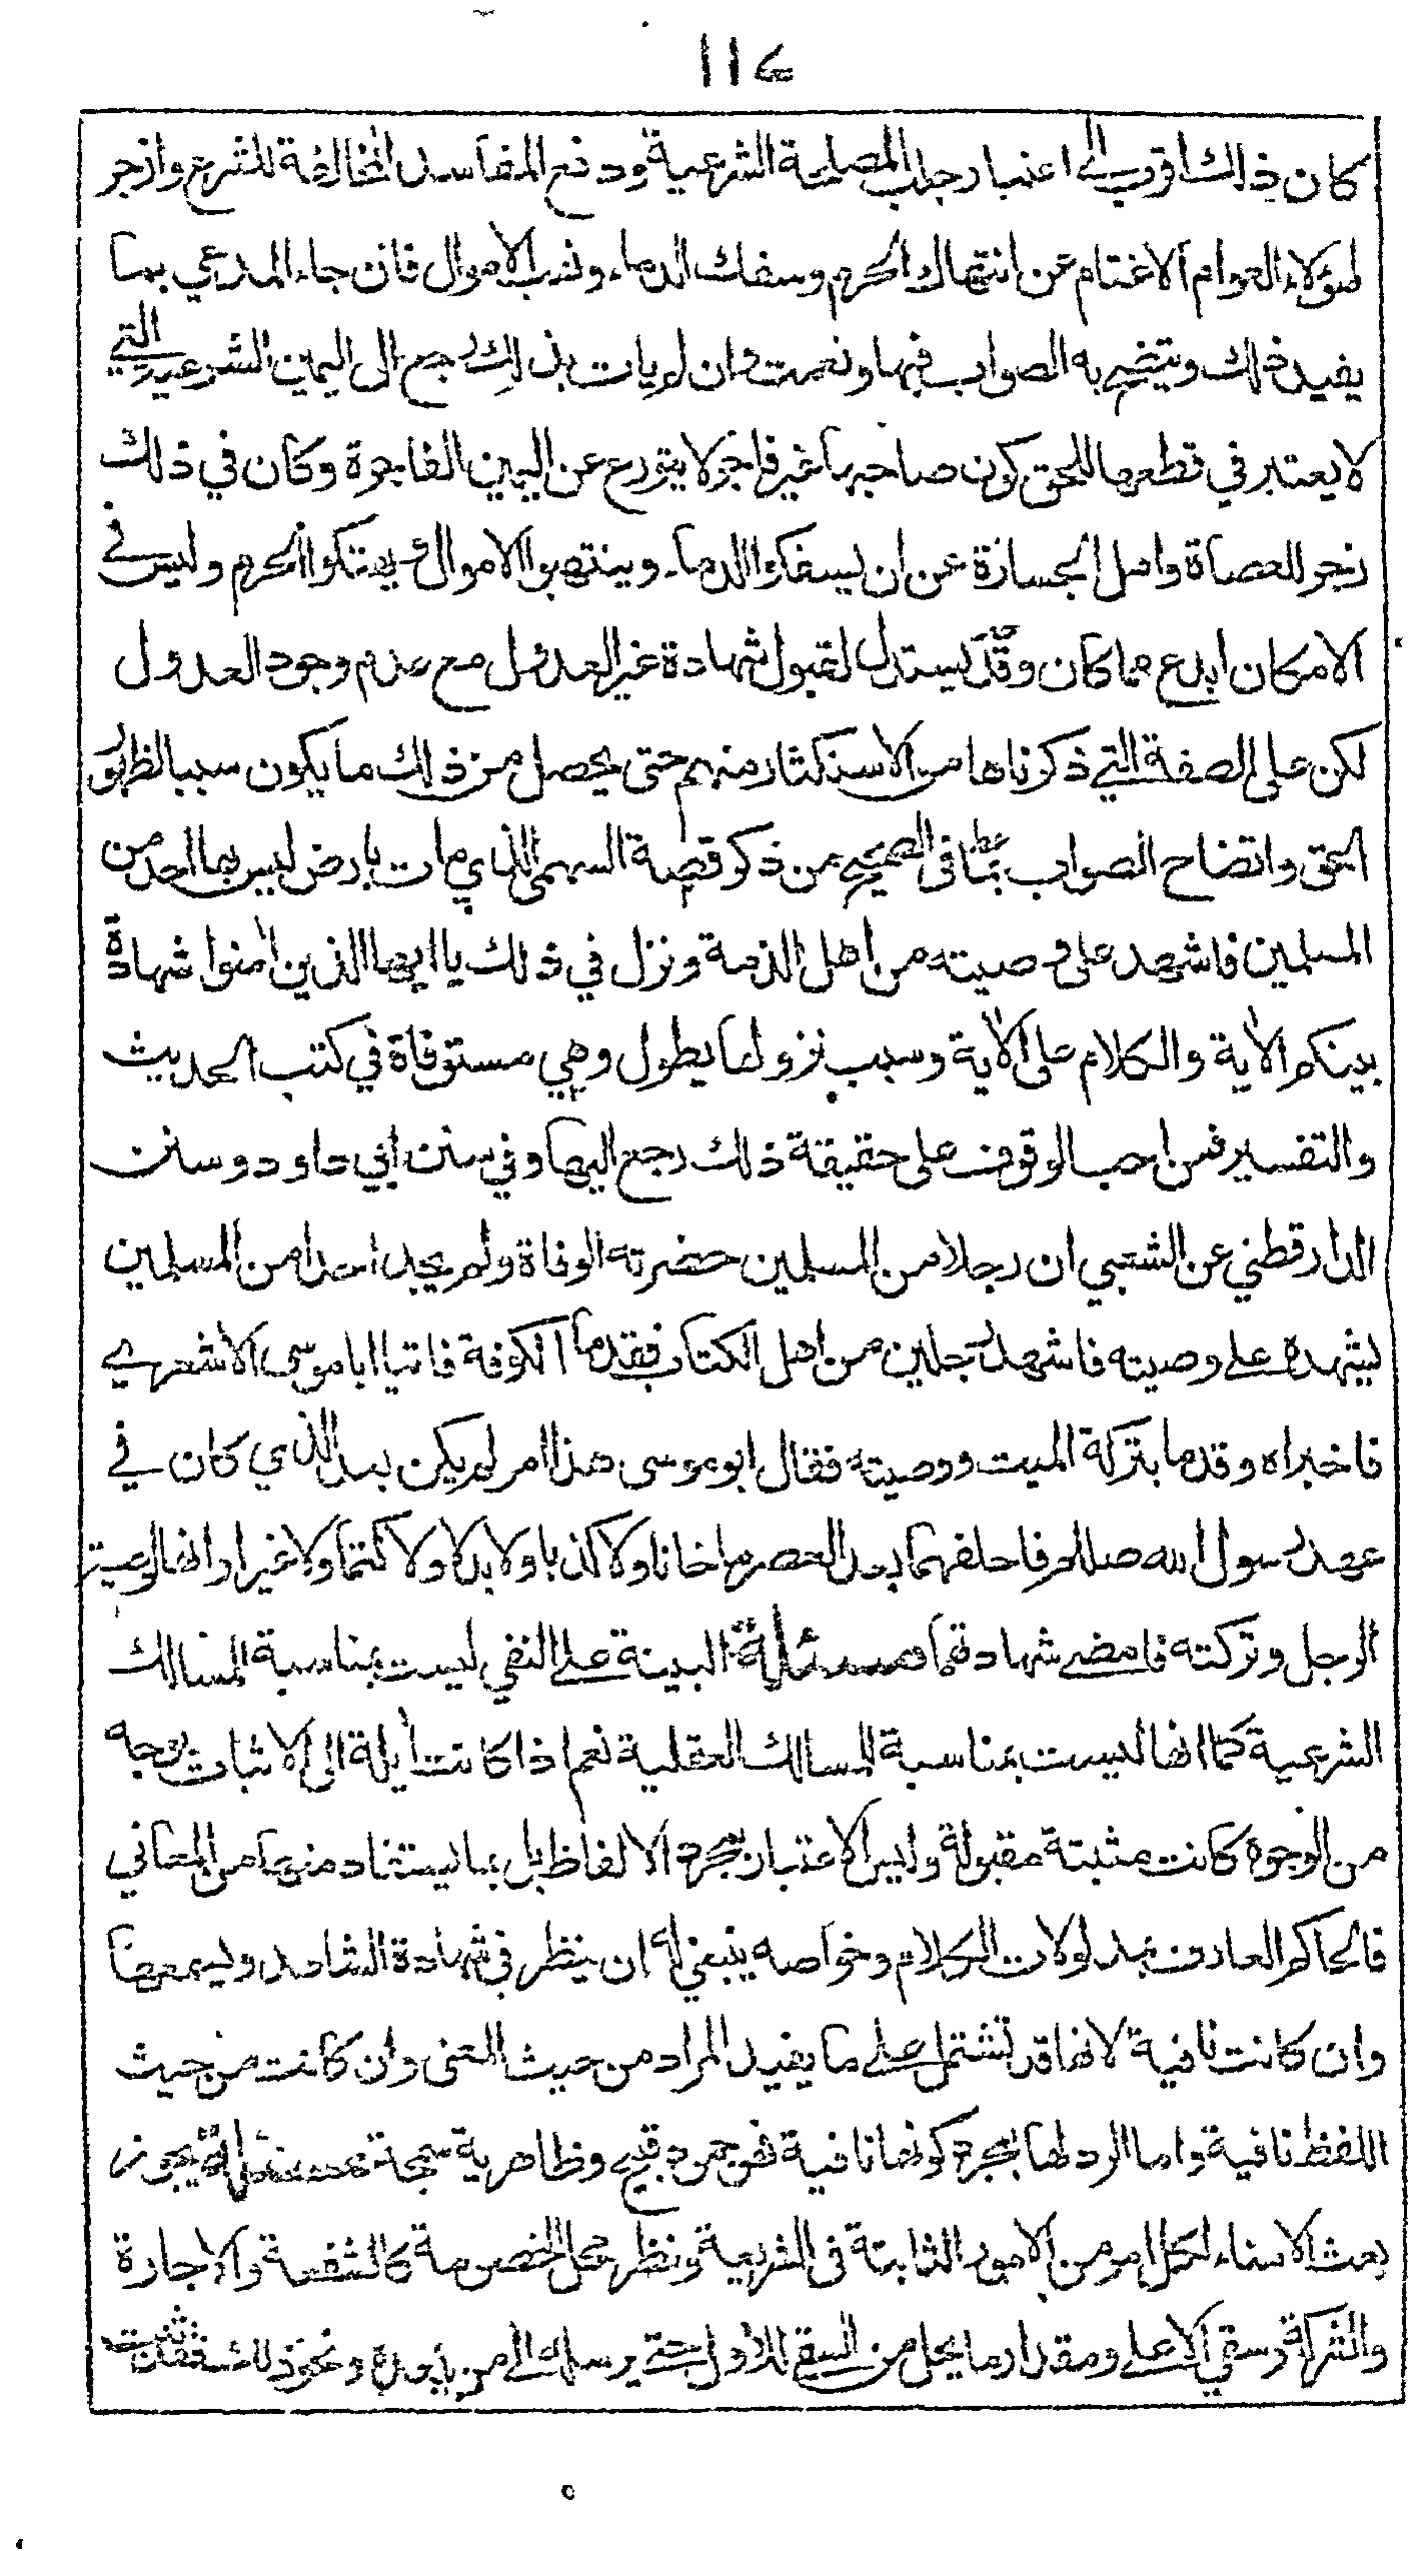 ١١٤
كان ذلك اقرب الى اعتبار جلب المصلحة الشرعية ودفع المفاسد المخالفة للشرع وازجر
لهؤلاء العوام الاغتام عن انتهاك الحرم وسفك الدماء ونهب الاموال فان جاء المدعي بما
يفيد ذلك ويتضح به الصواب فبها ونعمت وان لم يات بذلك رجع الى اليمين الشرعية التي
لا يعتبر في قطعها للحق كون صاحبها غير فاجر لا يتورع عن اليمين الفاجرة وكان في ذلك
زجر للعصاة واهل الجسارة عن ان يسفكوا الدماء وينتهبوا الاموال ويهتكوا الحرم وليس في
الامكان ابدع مما كان وقد يستدل لقبول شهادة غير العدول مع عدم وجود العدول
لكن على الصفة التي ذكرناها من الاستكثار منهم حتى يحصل من ذلك ما يكون سببا لظهور
الحق واتضاح الصواب بما في الصحيح من ذكر قصة السهمي الذي مات بارض ليس بها احد من
المسلمين فاشهد على وصيته من اهل الذمة ونزل في ذلك يا ايها الذين امنوا شهادة
بينكم الاية والكلام على الاية وسبب نزولها يطول وهي مستوفاة في كتب الحديث
والتفسير فمن احب الوقوف على حقيقة ذلك رجع اليها وفي سنن ابي داود وسنن
الدارقطني عن الشعبي ان رجلا من المسلمين حضرته الوفاة ولم يجد احدا من المسلمين
يشهده على وصيته فاشهد رجلين من اهل الكتاب فقدما الكوفة فاتيا ابا موسى الاشعري
فاخبراه وقدما بتركة الميت ووصيته فقال ابو موسى هذا امر لم يكن بعد الذي كان في
عهد رسول الله صللم فاحلفهما بعد العصر ما خانا ولا كذبا ولا بدلا ولا كتما ولا غيرا وانها لوصية
الرجل وتركته فامضى شهادتهما مسئلة البينة على النفي ليست بمناسبة المسالك
الشرعية كما انها ليست بمناسبة المسالك العقلية نعم اذا كانت آيلة الى الاثبات بوجه
من الوجوه كانت مثبتة مقبولة وليس الاعتبار بمجرد الالفاظ بل بما يستفاد منها من المعاني
فالحاكم العارف بمدلولات الكلام وخواصه ينبغي له ان ينظر في شهادة الشاهد ويسمعها
وان كانت نافية لانها قد تشتمل على ما يفيد المراد من حيث المعنى وان كانت من حيث
اللفظ نافية واما الرد لها بمجرد كونها نافية فهو جمود قبيح وظاهرية سمجة مسئلة يجوز
بعث الامناء لكل امر من الامور الثابتة في الشريعة ونظر محل الخصومة كالشفعة والاجارة
والشركة وسقي الاعلى ومقدار ما يحل من السقي للاول حتى يرسله الى من بعده ونحو ذلك فقد ثبت